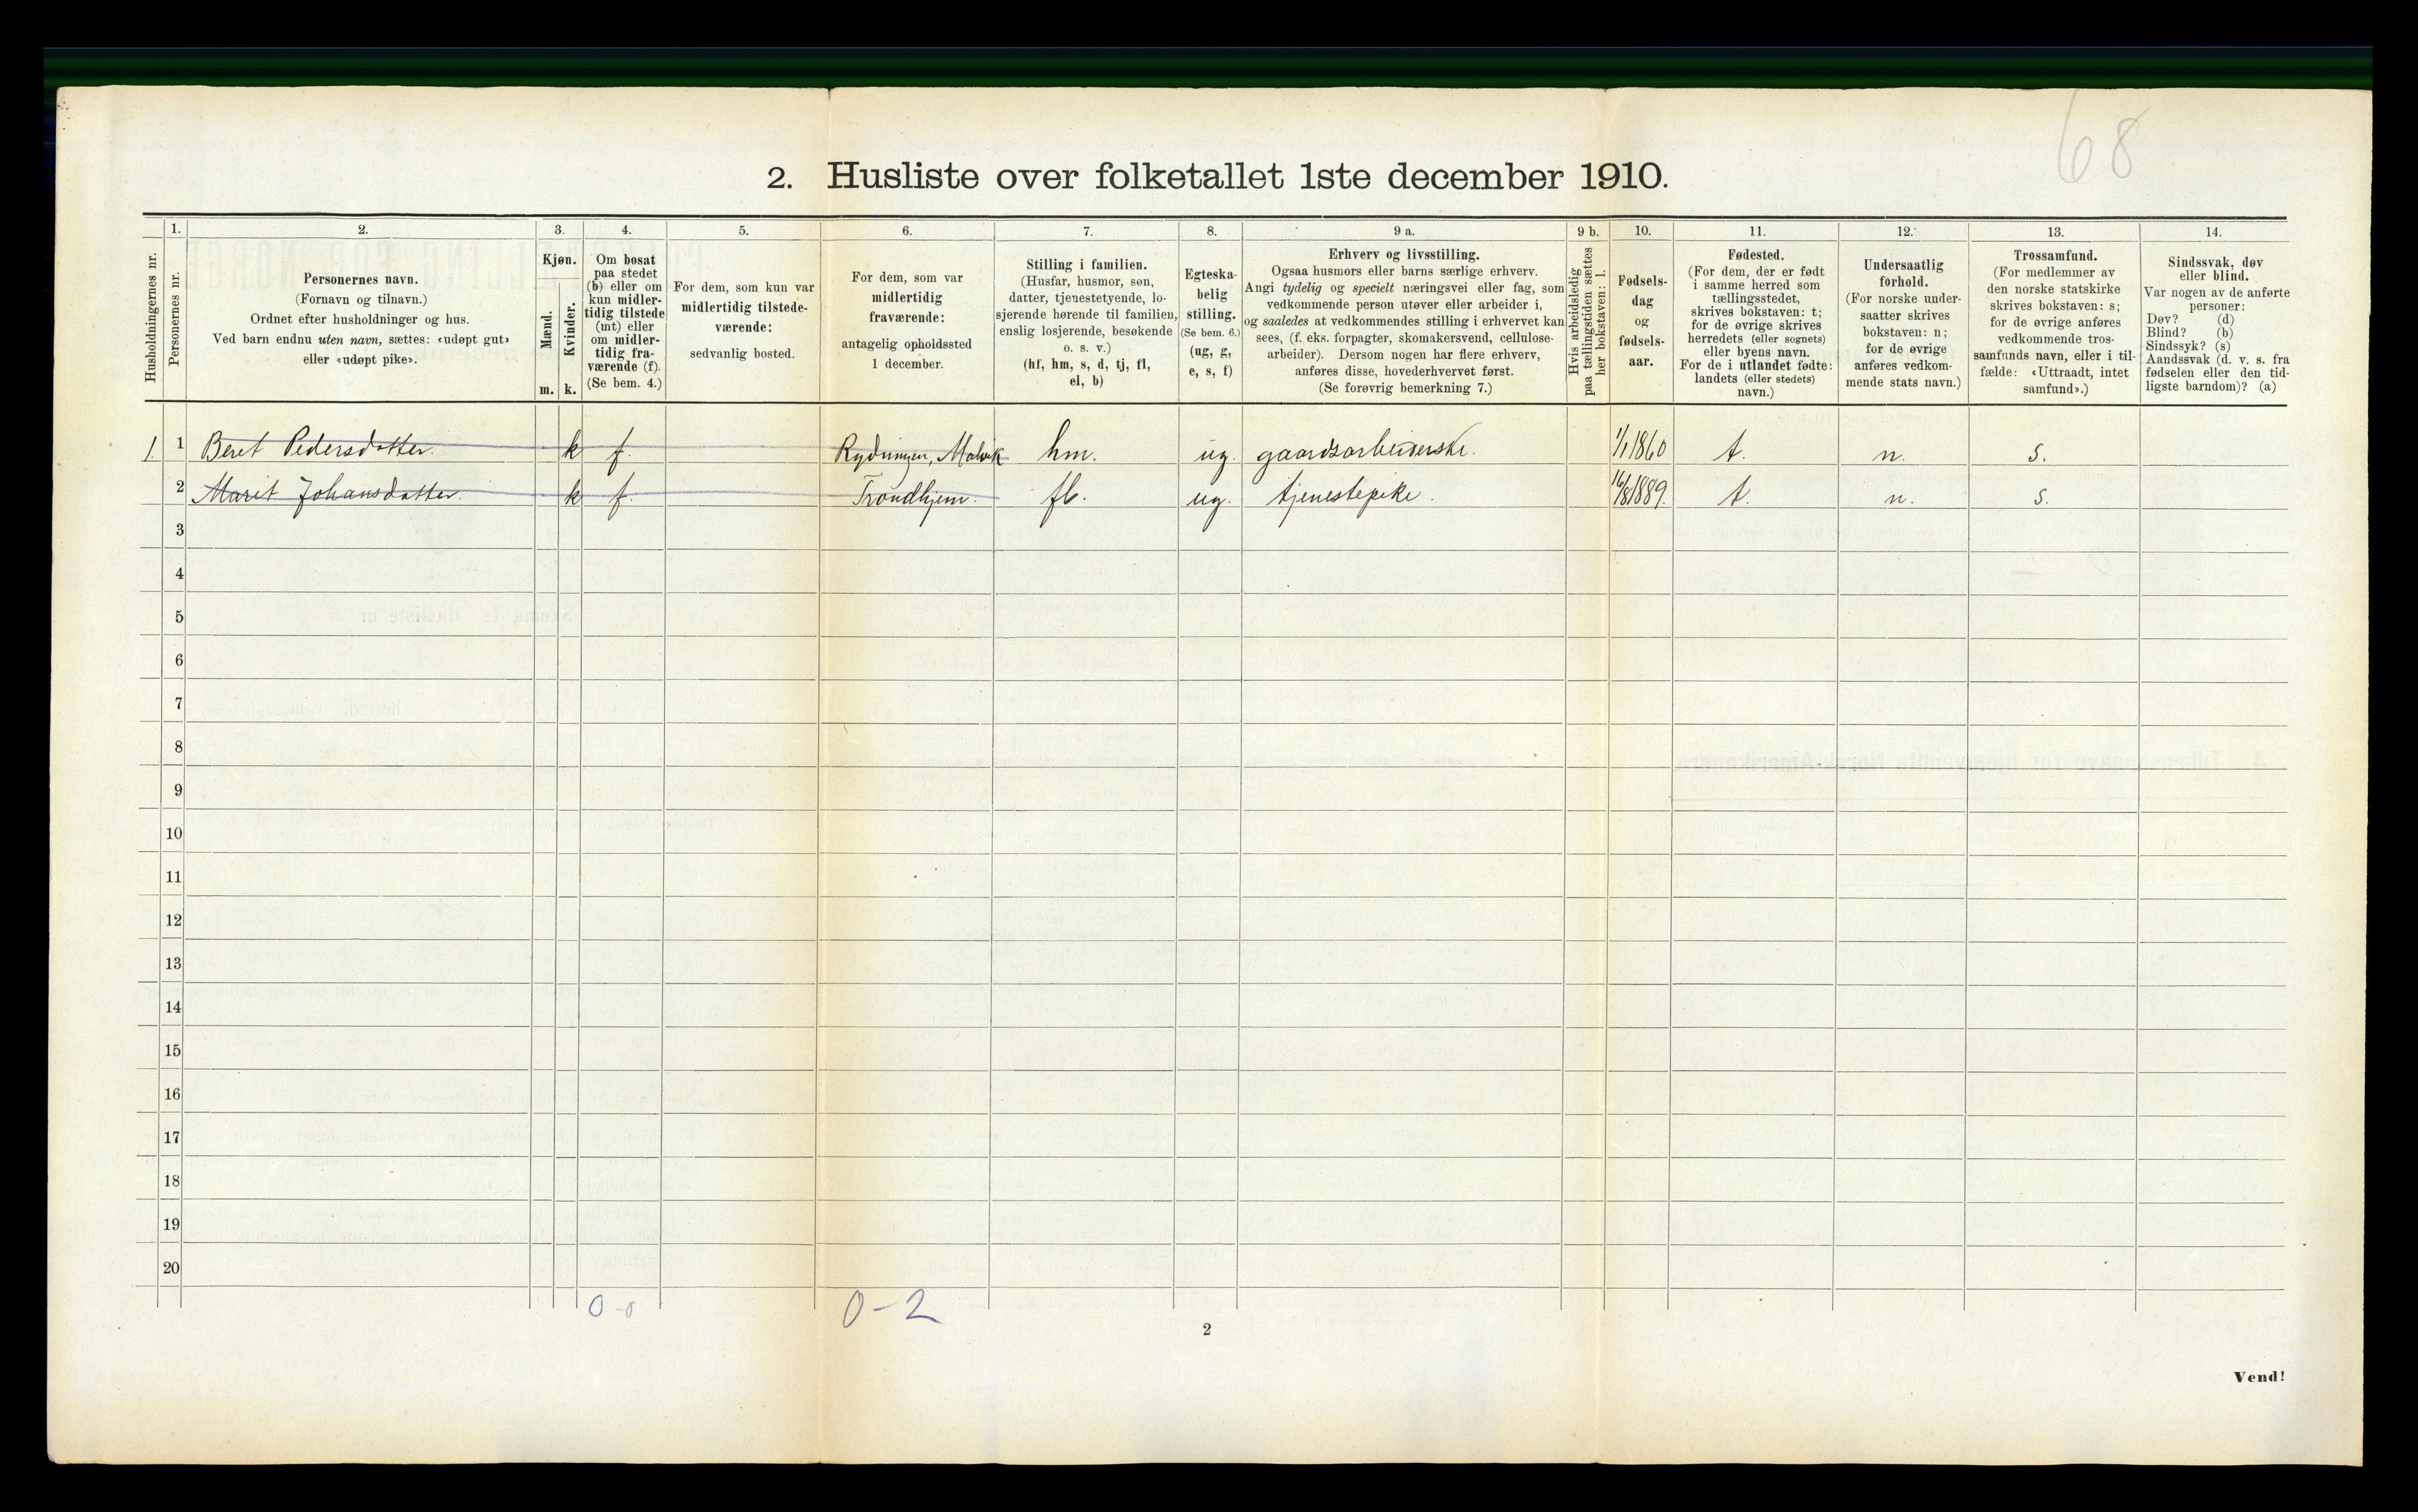 68
2. Husliste over folketallet 1ste december 1910.
Husholdningernes nr.
1.
Personernes nr.
2.
Personernes navn.
(Fornavn og tilnavn.)
Ordnet efter husholdninger og hus.
Ved barn endnu uten navn, sættes: «udøpt gut»
eller «udøpt pike».
3.
Kjøn.
Mænd.
m.
Kvinder.
k.
4.
Om bosat
paa stedet
(b) eller om
kun midler-
tidig tilstede
(mt) eller
om midler-
tidig fra-
værende (f).
(Se bem. 4.)
5.
For dem, som kun var
midlertidig tilstede-
værende:
sedvanlig bosted.
6.
For dem, som var
midlertidig
fraværende:
antagelig opholdssted
1 december.
7.
Stilling i familien.
(Husfar, husmor, søn,
datter, tjenestetyende, lo-
sjerende hørende til familien,
enslig losjerende, besøkende
o. s. v.)
(hf, hm, s, d, tj, fl,
el, b)
8.
Egteska-
belig
stilling.
(Se bem. 6.)
(ug, g,
e, s, f)
9 a.
Erhverv og livsstilling.
Ogsaa husmors eller barns særlige erhverv.
Angi tydelig og specielt næringsvei eller fag, som
vedkommende person utøver eller arbeider i,
og saaledes at vedkommendes stilling i erhvervet kan
sees, (f. eks. forpagter, skomakersvend, cellulose-
arbeider). Dersom nogen har flere erhverv,
anføres disse, hovederhvervet først.
(Se forøvrig bemerkning 7.)
9 b.
Hvis arbeidsledig
paa tællingstiden sættes
her bokstaven: l.
10.
Fødsels-
dag
og
fødsels-
aar.
11.
Fødested.
(For dem, der er født
i samme herred som
tællingsstedet,
skrives bokstaven: t;
for de øvrige skrives
herredets (eller sognets)
eller byens navn.
For de i utlandet fødte:
landets (eller stedets)
navn.)
12.
Undersaatlig
forhold.
(For norske under-
saatter skrives
bokstaven: n;
for de øvrige
anføres vedkom-
mende stats navn.)
13.
Trossamfund.
(For medlemmer av
den norske statskirke
skrives bokstaven: s;
for de øvrige anføres
vedkommende tros-
samfunds navn, eller i til-
fælde: «Uttraadt, intet
samfund».)
14.
Sindssvak, døv
eller blind.
Var nogen av de anførte
personer:
Døv? (d)
Blind? (b)
Sindssyk? (s)
Aandssvak (d. v. s. fra
fødselen eller den tid-
ligste barndom)? (a)
1. 1 Beret Pedersdatter. k f. Rydningen, Malvik hm. ug. gaardsarbeiderske. 1/1 1860 t. n. s.
2 Marit Johansdatter. k f. Trondhjem. fl. ug. tjenestepike. 16/8 1889. t. n. s.
3
4
5
6
7
8
9
10
11
12
13
14
15
16
17
18
19
20
0-0 0-2
2
Vend!